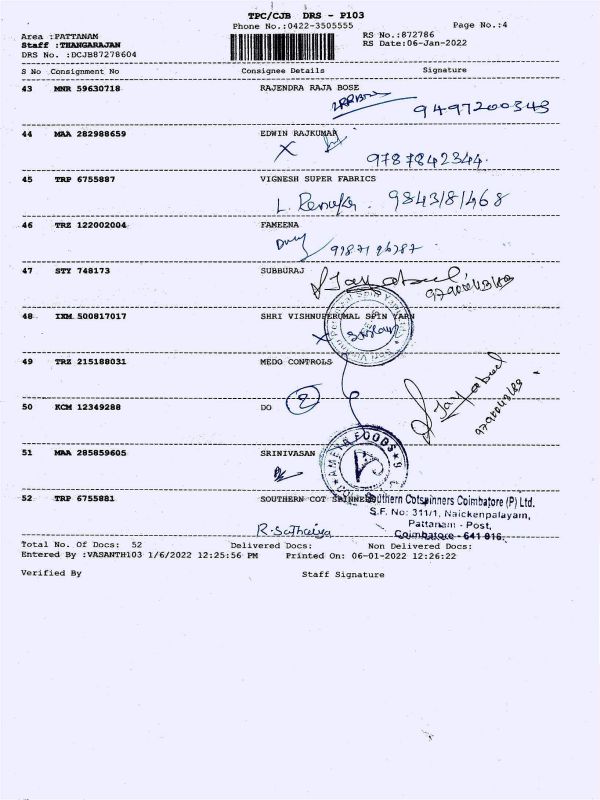 TPC/CJB DRS - P103
Phone No.:0422-3505555 Page No.:4
Area :PATTANAM RS No.:872786
Staff :THANGARAJAN RS Date:06-Jan-2022
DRS No. :DCJB87278604
S No Consignment No Consignee Details Signature
43 MNR 59630718 RAJENDRA RAJA BOSE
9497200343
44 MAA 282988659 EDWIN RAJKUMAR
X 9787842344.
45 TRP 6755887 VIGNESH SUPER FABRICS
L. Renuka. 9843181468
46 TRZ 122002004 FAMEENA
47 STY 748173 SUBBURAJ
48 IXM 500817017 SHRI VISHNUPERUMAL SPIN YARN
49 TRZ 215188031 MEDO CONTROLS
50 KCM 12349288 DO 2
51 MAA 285859605 SRINIVASAN
FOODS
52 TRP 6755881 SOUTHERN COT SPINNERS
Southern Cotspinners Coimbatore (P) Ltd.
S.F. No: 311/1, Naickenpalayam,
Pattanam - Post,
Coimbatore - 641 016.
R. Sathaiya
Total No. Of Docs: 52 Delivered Docs: Non Delivered Docs:
Entered By :VASANTH103 1/6/2022 12:25:56 PM Printed On: 06-01-2022 12:26:22
Verified By Staff Signature